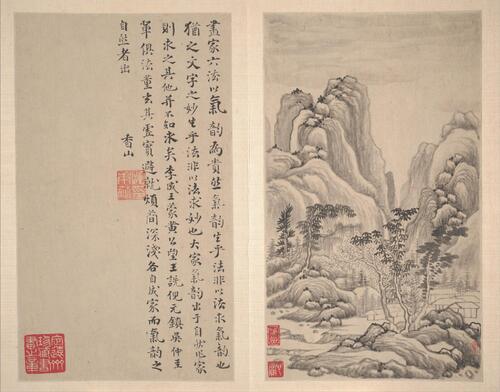 畫家六法以氣韻為貴然氣韻生乎法非以法求氣韻也
猶之文字之妙生乎法非以法求妙也大家氣韻出于自然作家
則求之其他并不知求矣李成王蒙黃公望王詵倪元鎮吳仲圭
輩俱法董玄其虛實避就煩簡深淺各自成家而氣韻之
自然者出
香山